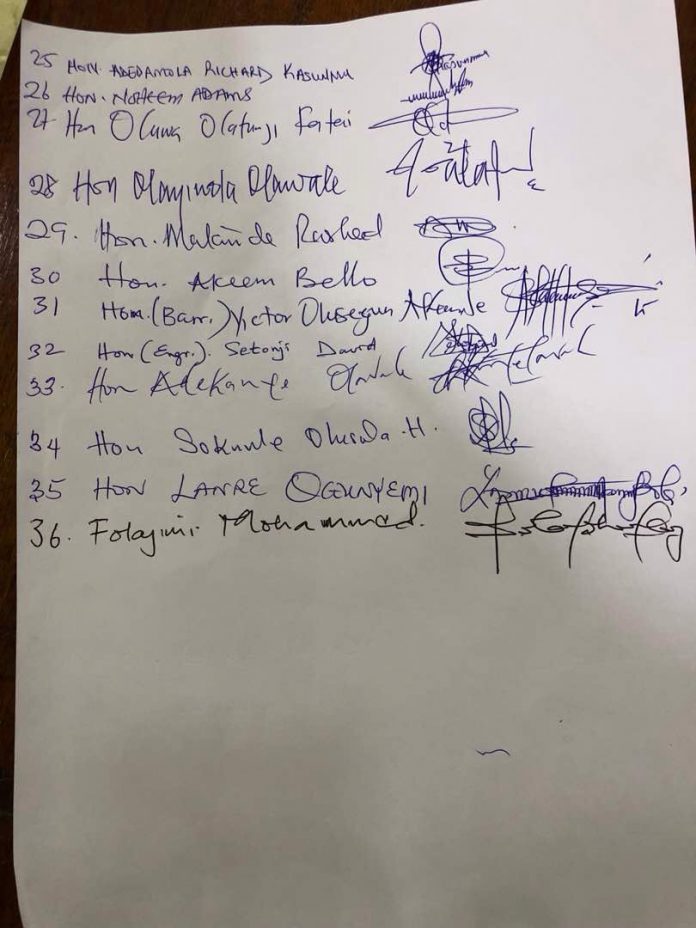 25 HON. ADEDAMOLA RICHARD KASUNMU
26 HON. NOHEEM ADAMS
27 Hon Oluwa Olatunji Fatai
28 Hon Olayinola Olawale
29. Hon. Makinde Rasheed
30 Hon. Akeem Bello
31 Hon. (Barr.) Victor Olusegun Akande
32 Hon (Engr.). Setonji David
33. Hon Adekanye Olawale
34 Hon Sokunle Olusola .H.
35 HON LANRE OGUNYEMI
36. Folajimi Mohammed.